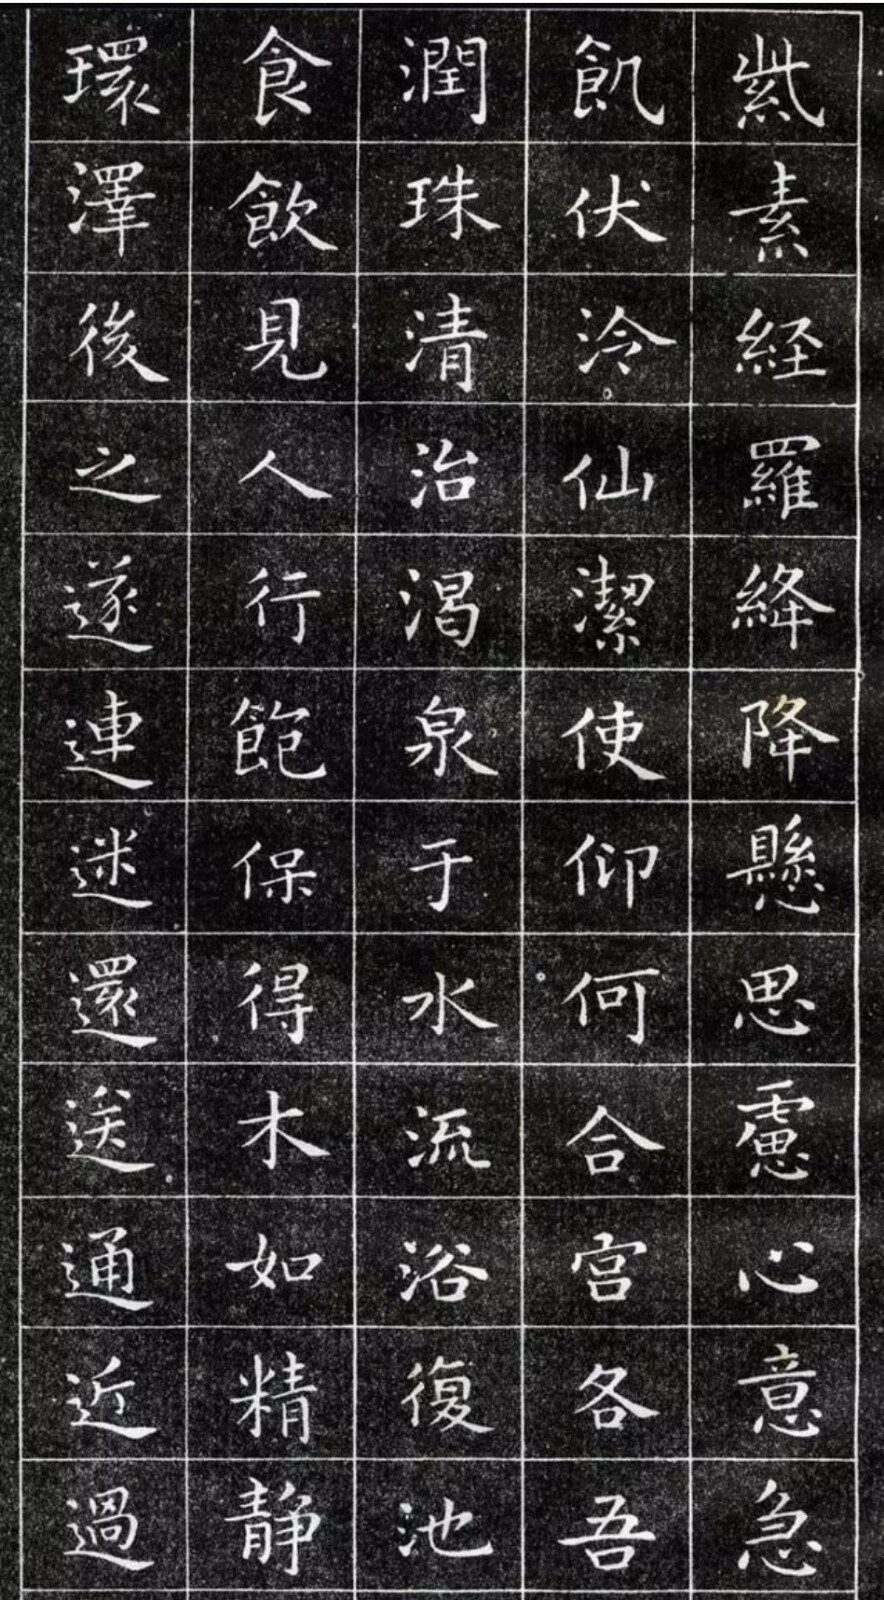 紫素経羅絳降懸思慮心意急
飢伏泠仙潔使仰何合宮各吾
潤珠清治渴泉于水流浴復池
食飲見人行飽保得木如精靜
環澤後之遂連迷還送通近過